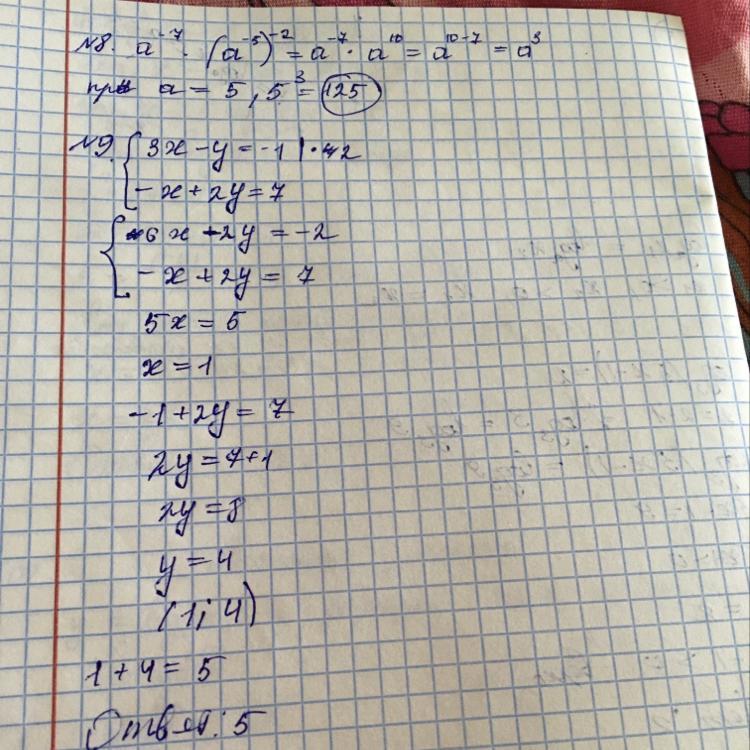 №8. a⁻⁷ · (a⁻⁵)⁻² = a⁻⁷ · a¹⁰ = a¹⁰⁻⁷ = a³
при a = 5, 5³ = 125
№9. { 3x - y = -1 | · 2
- x + 2y = 7
{ 6x - 2y = -2
- x + 2y = 7
5x = 5
x = 1
-1 + 2y = 7
2y = 7+1
2y = 8
y = 4
(1; 4)
1 + 4 = 5
Ответ: 5